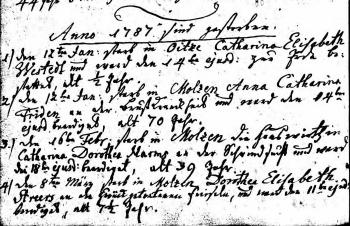 Anno 1787 sind gestorben.
1) den 12ten Jan: starb in Oitze Catharina Elisabeth
Westedt und ward den 14ten ejusd: zur Erde be-
stattet, alt ½ Jahr.
2) den 12ten Jan: starb in Molzen Anna Catharina
an der Brustkrankheit und ward den 14ten
ejusd beerdiget, alt 70 Jahr.
3.) den 16ten Febr. starb in Molzen die
Catharina Dorothea Harms an der Schwindsucht und ward
den 18ten ejusd: beerdiget, alt 39 Jahr.
4) den 8ten März starb in Molzen Dorothea Elisabeth
an und ward den 11ten ejusd
beerdiget, alt 7½ Jahr.